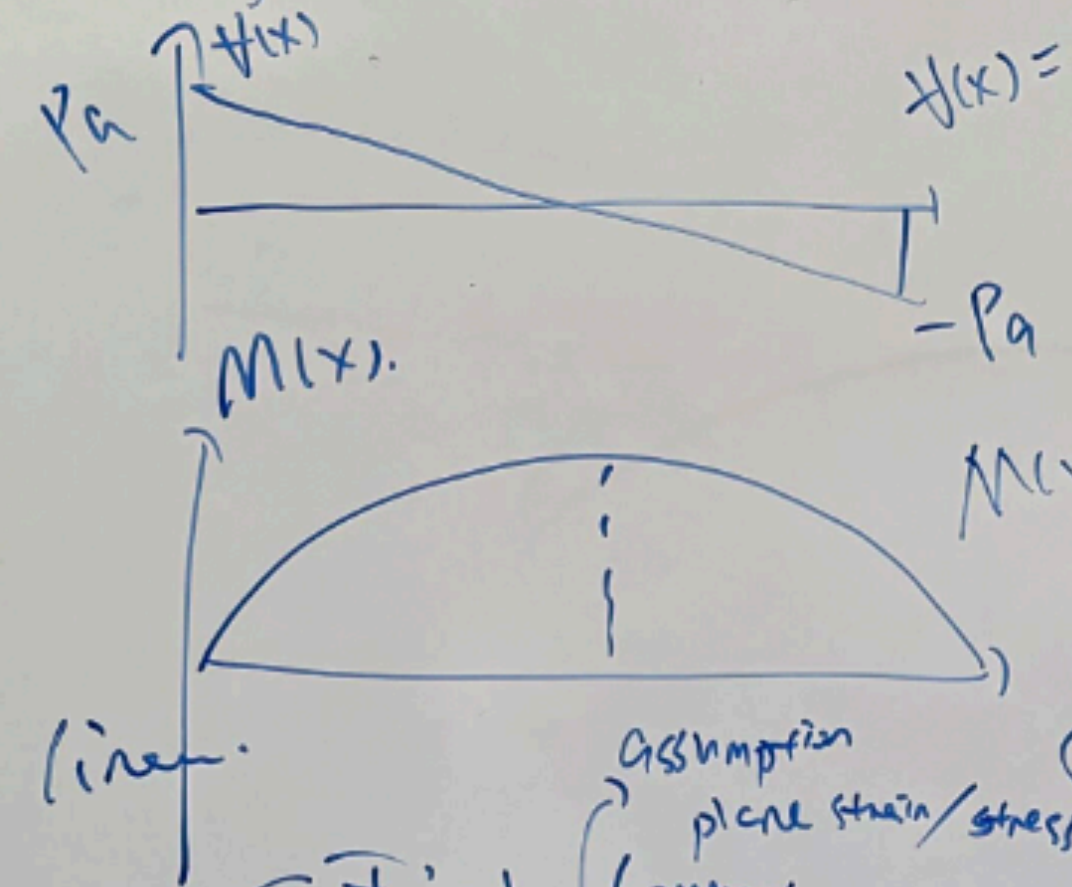 V(x)
V(x) =
Pa
-Pa
M(x).
M(
linear.
assumption
plane strain/stress